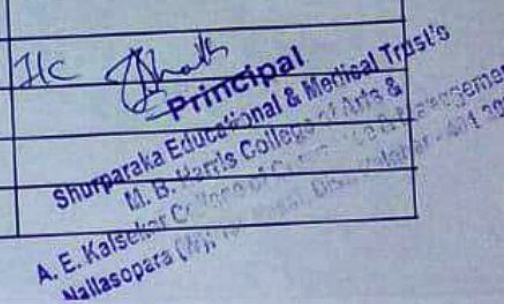 I/C
Principal
Shurparaka Educational & Medical Trust's
M. B. Harris College of Arts &
A. E. Kalsekar College of Commerce & Management
Nallasopara (W),